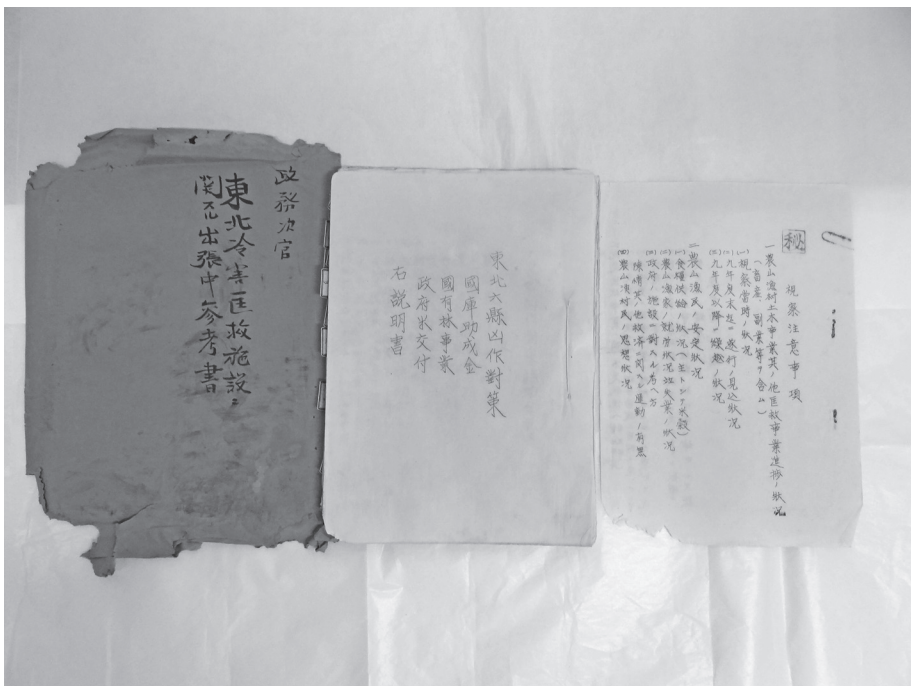 政務次官
東北冷害匡救施設ニ
関スル出張中参考書
東北六縣凶作對策
國庫助成金
國有林事業
政府米交付
右説明書
秘
視察注意事項
一 農山漁村土木事業其ノ他匡救事業進捗ノ状況
(畜産、副業等ヲ含ム)
(一) 視察當時ノ状況
(二) 九年度末迄ニ遂行ノ見込状況
(三) 九年度以降ノ状況
二 農山漁民ノ安定状況
(一) 食糧供給ノ状況(主トシテ米穀)
農山漁家ノ就労状況並失業ノ状況
政府ノ施設ニ對スル考ヘ方
陳情其ノ他救済ニ関スル運動ノ有無
(四) 農山漁村民ノ思想状況